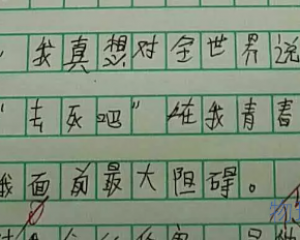 ，我真想对全世界说
“去死吧”在我青春
我面前最大阻碍。